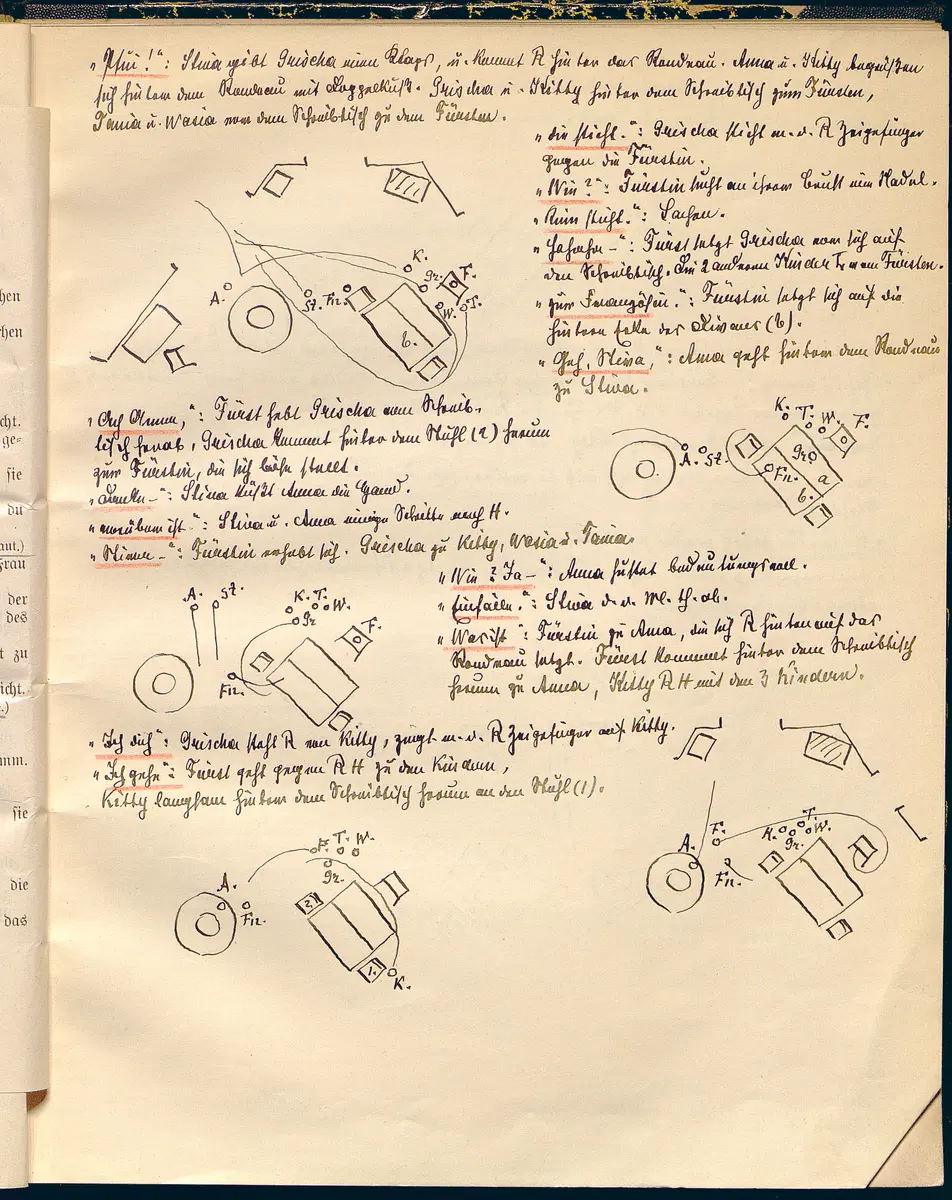 „Pfui!“: Stiva gibt Grischa einen Klaps, u. kommt R hinter das Rondeau. Anna u. Kitty begrüßen
sich hinter dem Rondeau mit Doppelkuß. Grischa u. Kitty hinter dem Schreibtisch zum Fürsten,
Tania u. Wasia vor dem Schreibtisch zu dem Fürsten.
„die sticht.“: Grischa sticht m. d. R Zeigefinger
gegen die Fürstin.
„Wie?“: Fürstin sucht an ihrer Brust eine Nadel.
„sticht.“: Lachen.
„Hahaha–“: Fürst setzt Grischa vor sich auf
den Schreibtisch. Die 2 anderen Kinder vom Fürsten.
„zur Französin.“: Fürstin setzt sich auf die
hintere Ecke des Divans (b).
„Geh, Stiva,“: Anna geht hinter dem Rondeau
zu Stiva.
K.
A. St. Fn. Gr. F.
W. T.
b.
„Ach Anna,“: Fürst hebt Grischa vom Schreib-
tisch herab, Grischa kommt hinter dem Stuhl (2) herum
zur Fürstin, die sich böse stellt.
„Danke–“: Stiva küßt Anna die Hand.
„vorüber ist–“: Stiva u. Anna einige Schritte nach H.
„Stiva–“: Fürstin erhebt sich. Grischa zu Kitty, Wasia u. Tania.
K. T. W. F.
A. St. Gr. a
Fn. b.
„Wie? Ja–“: Anna hustet bedeutungsvoll.
„Einfälle.“: Stiva d. d. Ml. th. ab.
„Was ist“: Fürstin zu Anna, die sich R hinten auf das
Rondeau setzt. Fürst kommt hinter dem Schreibtisch
herum zu Anna, Kitty R H mit den 3 Kindern.
A. St. K. T. W.
Gr. F.
Fn.
„Ich dich“: Grischa steht R von Kitty, zeigt m. d. R Zeigefinger auf Kitty.
„Ich gehe“: Fürst geht gegen R H zu den Kindern,
Kitty langsam hinter dem Schreibtisch herum an den Stuhl (1).
A. F. K. T. W.
Gr.
Fn.
F. T. W.
A. Gr.
Fn. 2.
1. K.
hen
chen
cht.
ge=
sie
du
aut.)
Frau
der
des
t zu
icht.
.)
mm.
sie
die
das